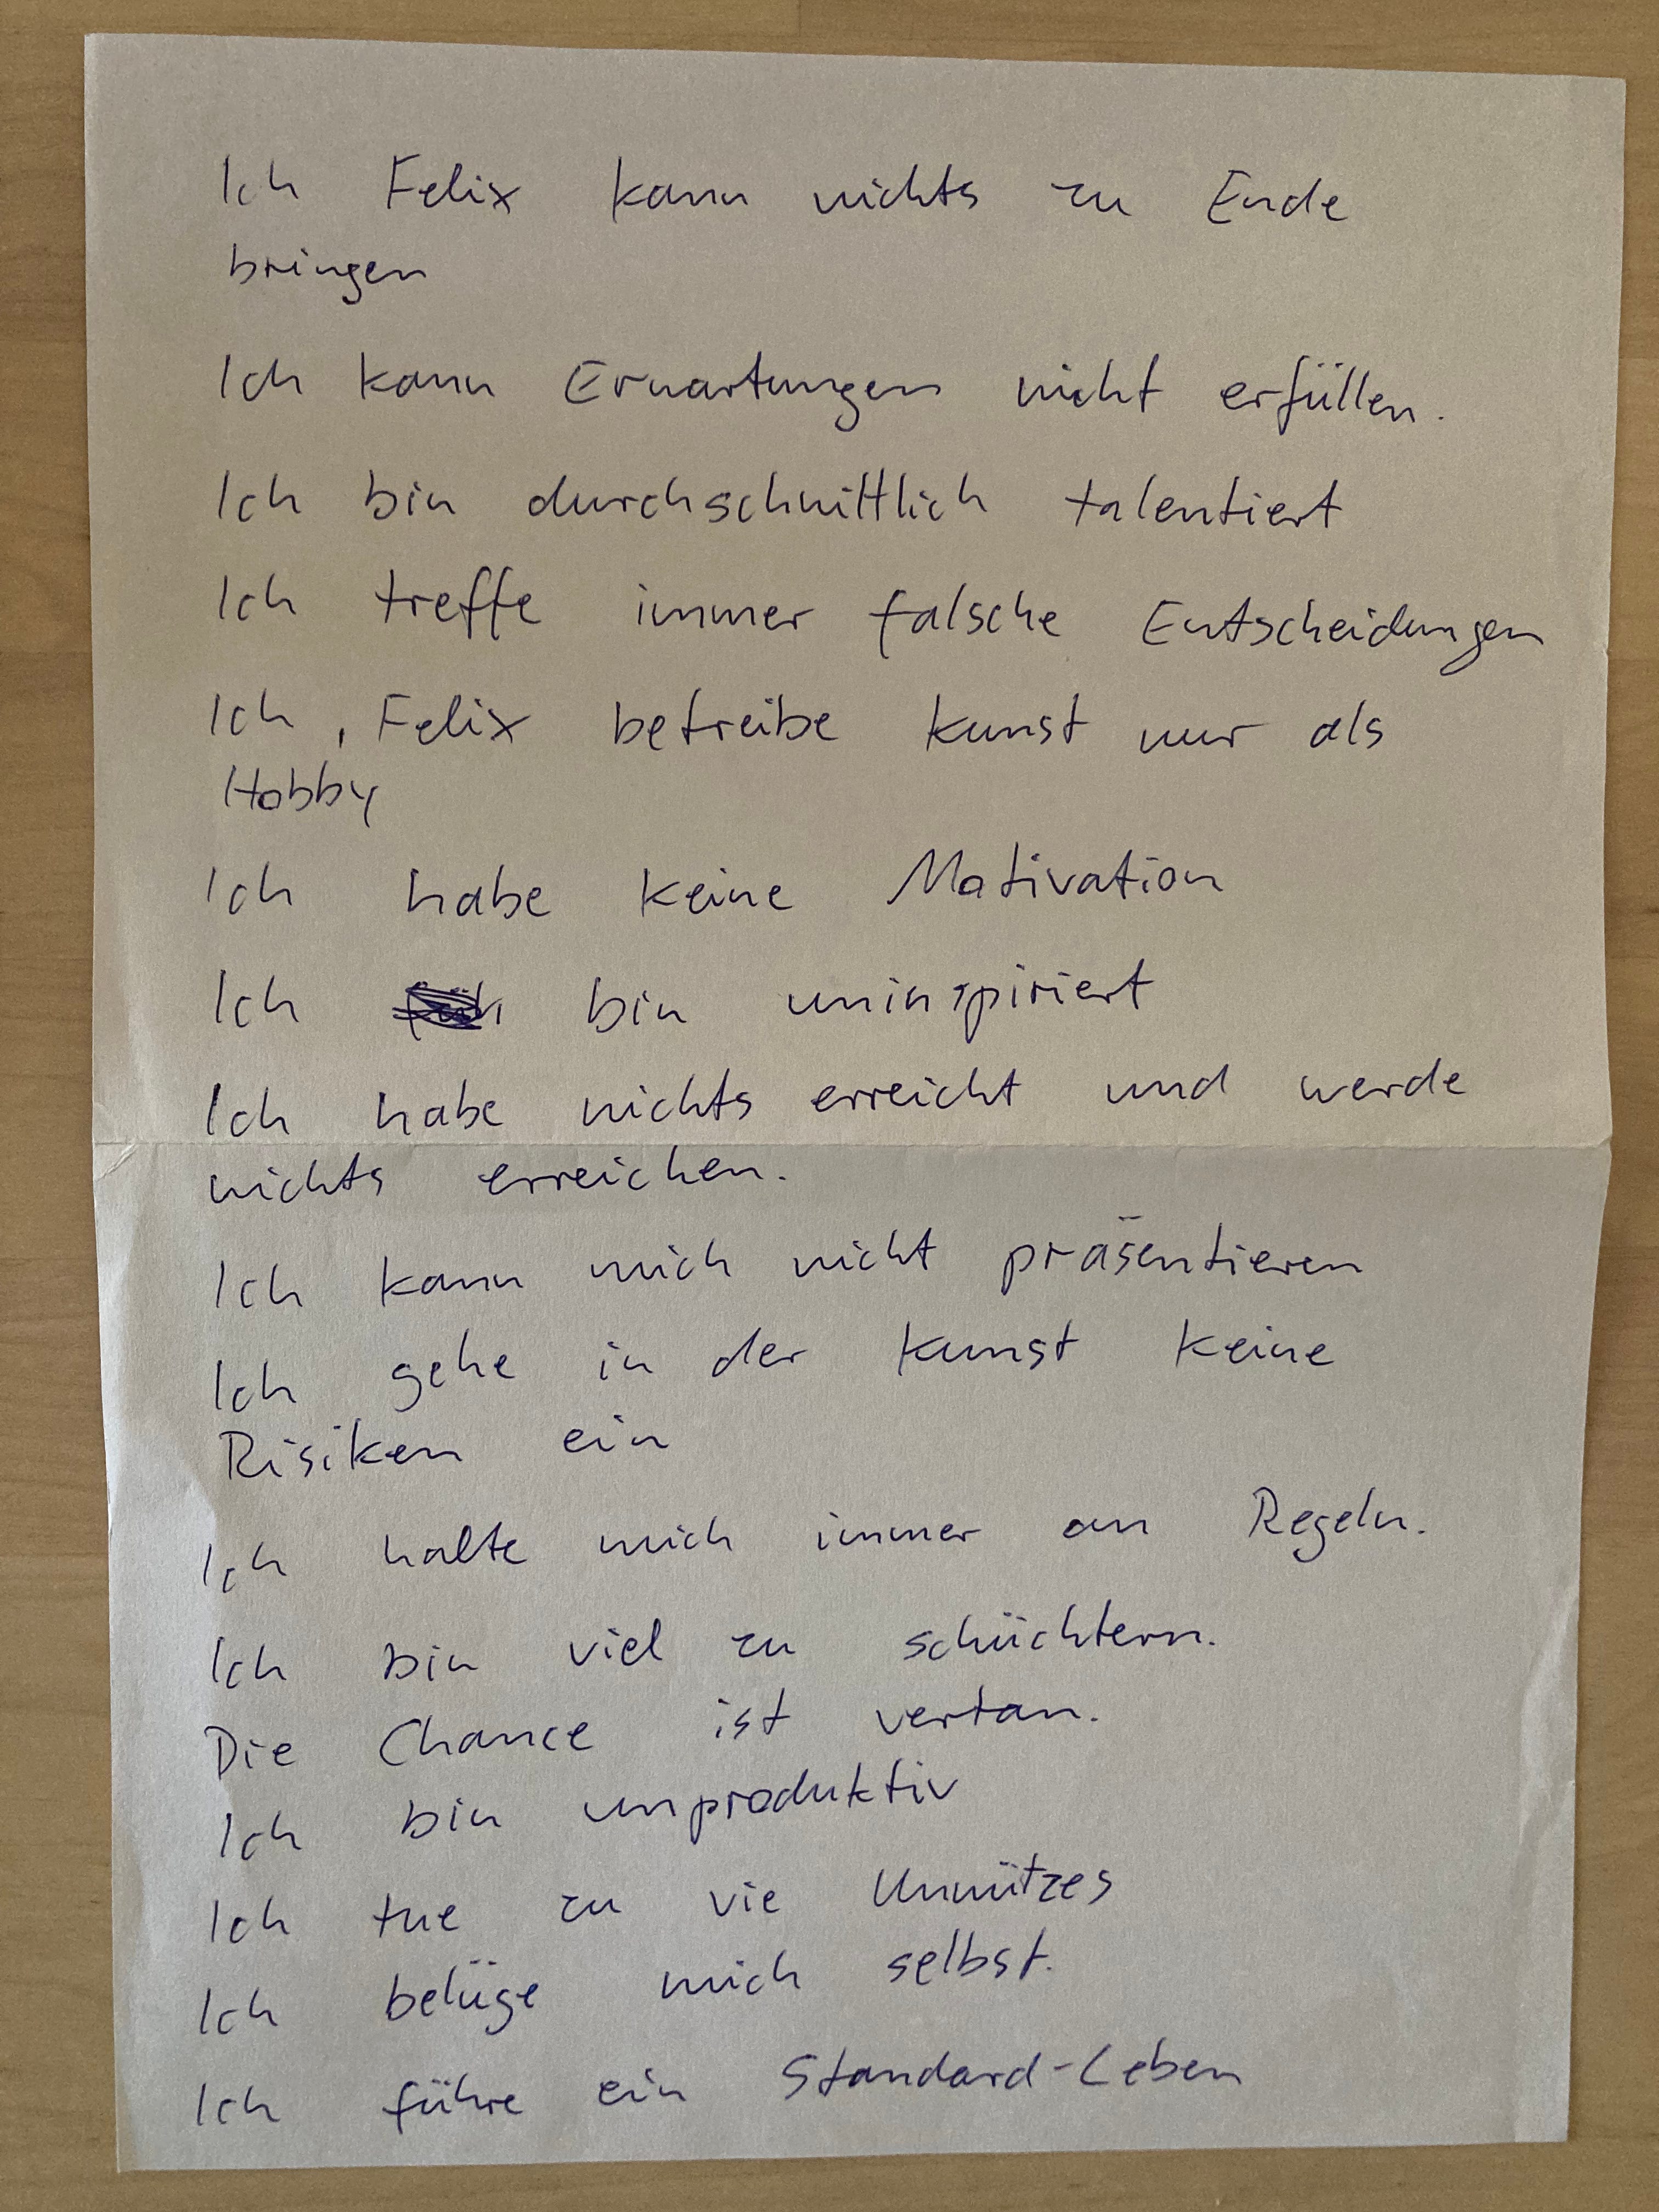 Ich Felix kann nichts zu Ende
bringen
Ich kann Erwartungen nicht erfüllen.
Ich bin durchschnittlich talentiert
Ich treffe immer falsche Entscheidungen
Ich, Felix betreibe Kunst nur als
Hobby
Ich habe keine Motivation
Ich bin uninspiriert
Ich habe nichts erreicht und werde
nichts erreichen.
Ich kann mich nicht präsentieren
Ich gehe in der Kunst keine
Risiken ein
Ich halte mich immer an Regeln.
Ich bin viel zu schüchtern.
Die Chance ist vertan.
Ich bin unproduktiv
Ich tue zu vie Unnützes
Ich belüge mich selbst.
Ich führe ein Standard-Leben